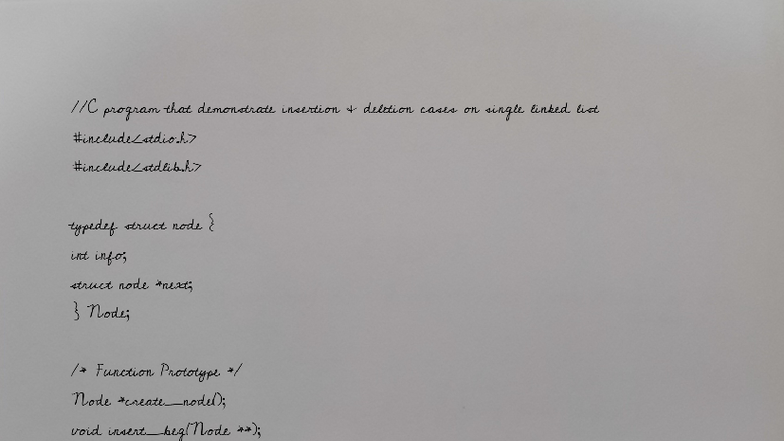 //C program that demonstrate insertion & deletion cases on single linked list
#include<stdio.h>
#include<stdlib.h>
typedef struct node {
int info;
struct node *next;
} Node;
/* Function Prototype */
Node *create_node();
void insert_beg(Node **);